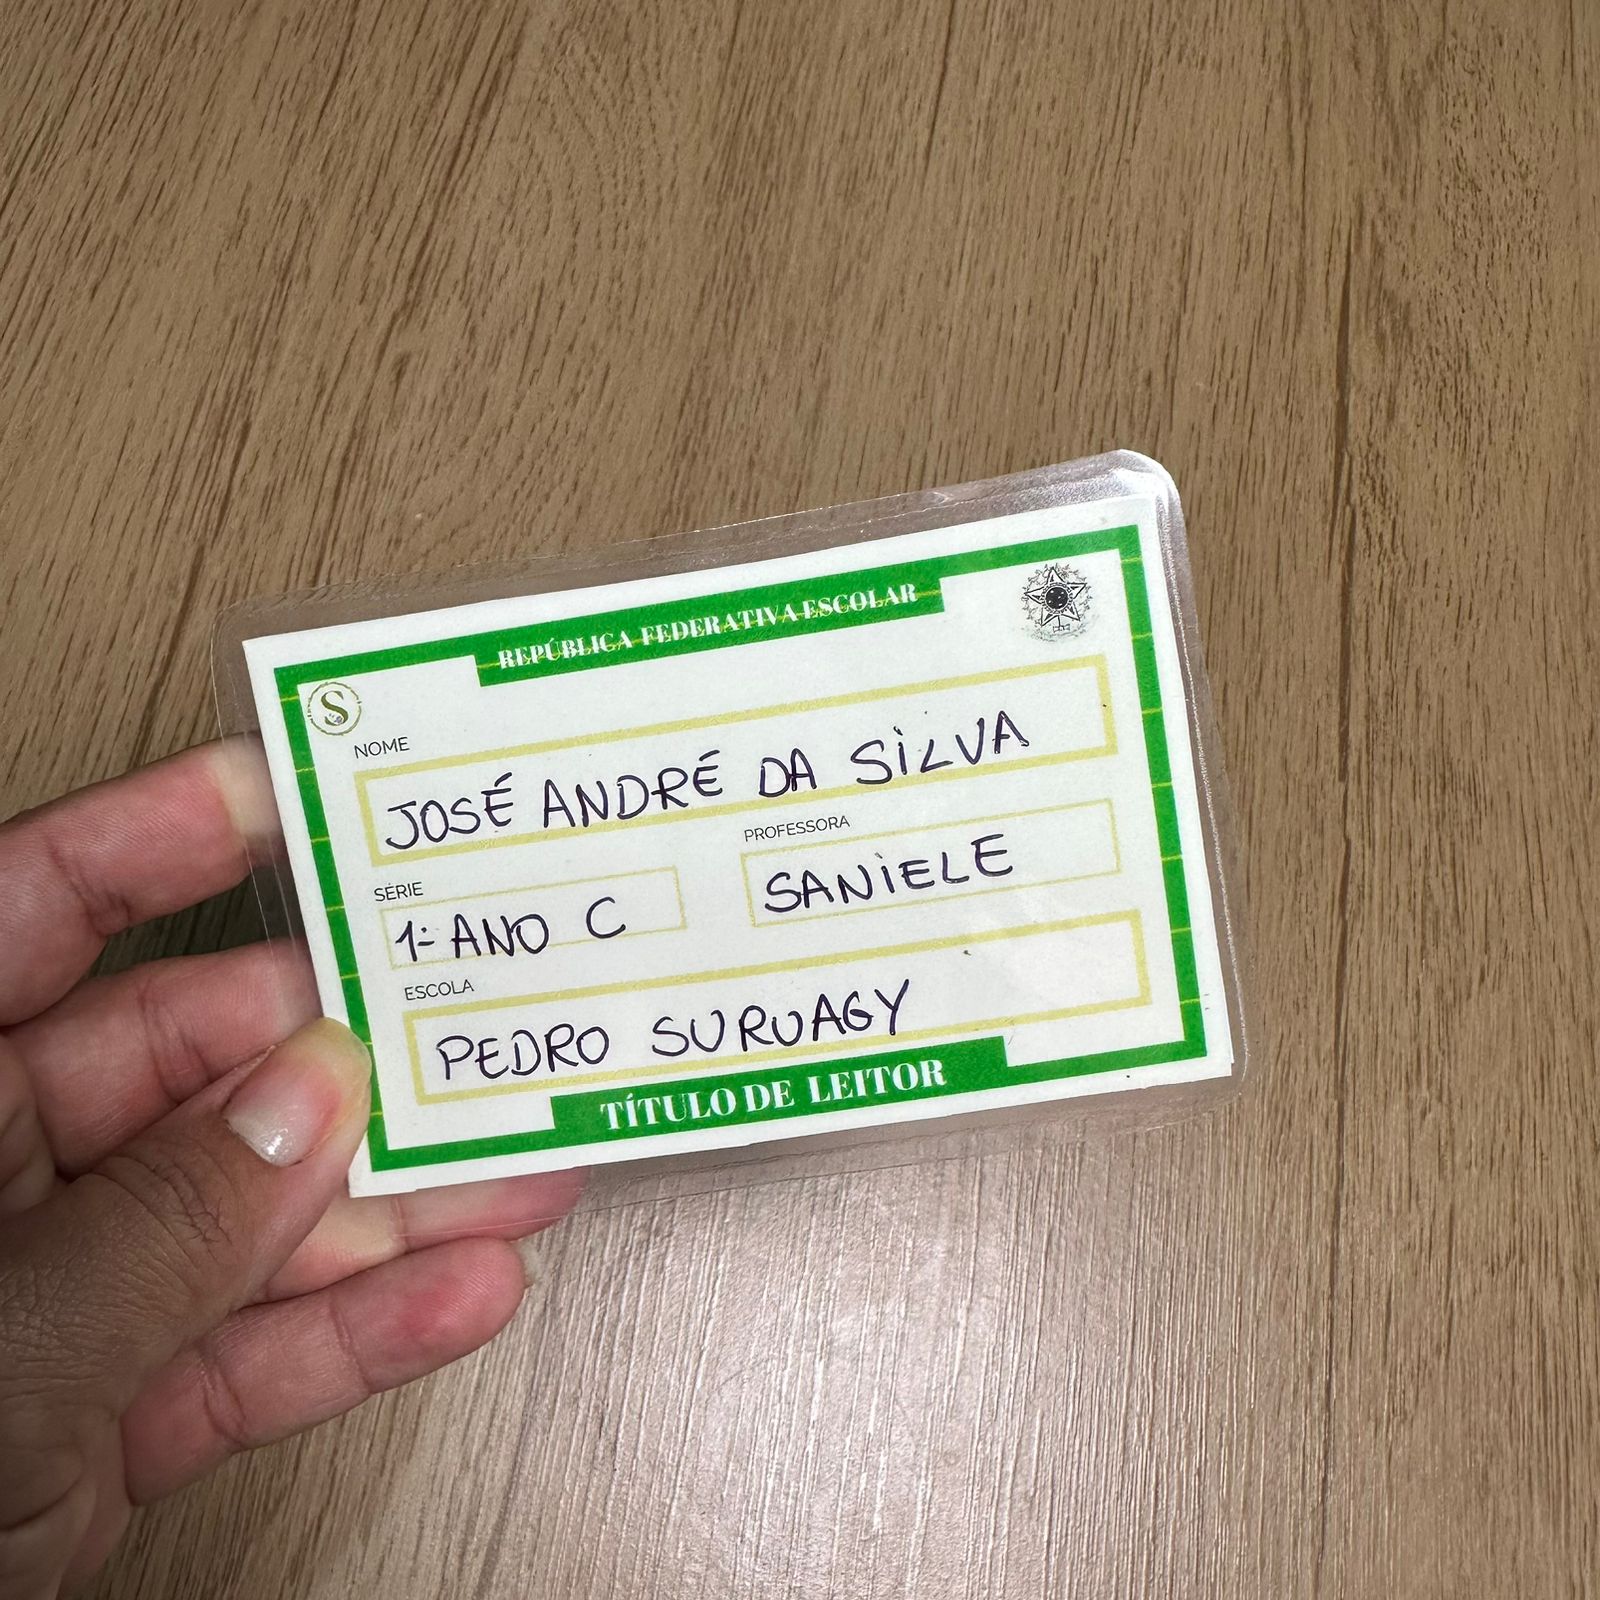 REPÚBLICA FEDERATIVA ESCOLAR
S
NOME
JOSÉ ANDRÉ DA SILVA
SÉRIE
1º ANO C
PROFESSORA
SANIELE
ESCOLA
PEDRO SURUAGY
TÍTULO DE LEITOR